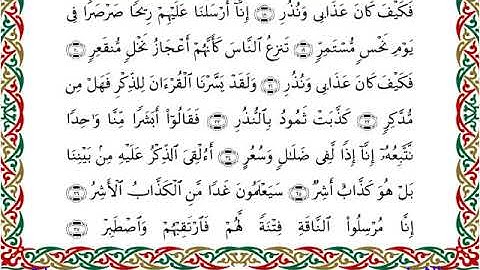 فَكَيْفَ كَانَ عَذَابِى وَنُذُرِ ١٨ إِنَّآ أَرْسَلْنَا عَلَيْهِمْ رِيحًا صَرْصَرًا فِى
يَوْمِ نَحْسٍ مُّسْتَمِرٍّ ١٩ تَنزِعُ ٱلنَّاسَ كَأَنَّهُمْ أَعْجَازُ نَخْلٍ مُّنقَعِرٍ ٢٠
فَكَيْفَ كَانَ عَذَابِى وَنُذُرِ ٢١ وَلَقَدْ يَسَّرْنَا ٱلْقُرْءَانَ لِلذِّكْرِ فَهَلْ مِن
مُّدَّكِرٍ ٢٢ كَذَّبَتْ ثَمُودُ بِٱلنُّذُرِ ٢٣ فَقَالُوٓا۟ أَبَشَرًا مِّنَّا وَٰحِدًا
نَّتَّبِعُهُۥٓ إِنَّآ إِذًا لَّفِى ضَلَٰلٍ وَسُعُرٍ ٢٤ أَءُلْقِىَ ٱلذِّكْرُ عَلَيْهِ مِنۢ بَيْنِنَا
بَلْ هُوَ كَذَّابٌ أَشِرٌ ٢٥ سَيَعْلَمُونَ غَدًا مَّنِ ٱلْكَذَّابُ ٱلْأَشِرُ ٢٦
إِنَّا مُرْسِلُوا۟ ٱلنَّاقَةِ فِتْنَةً لَّهُمْ فَٱرْتَقِبْهُمْ وَٱصْطَبِرْ ٢٧